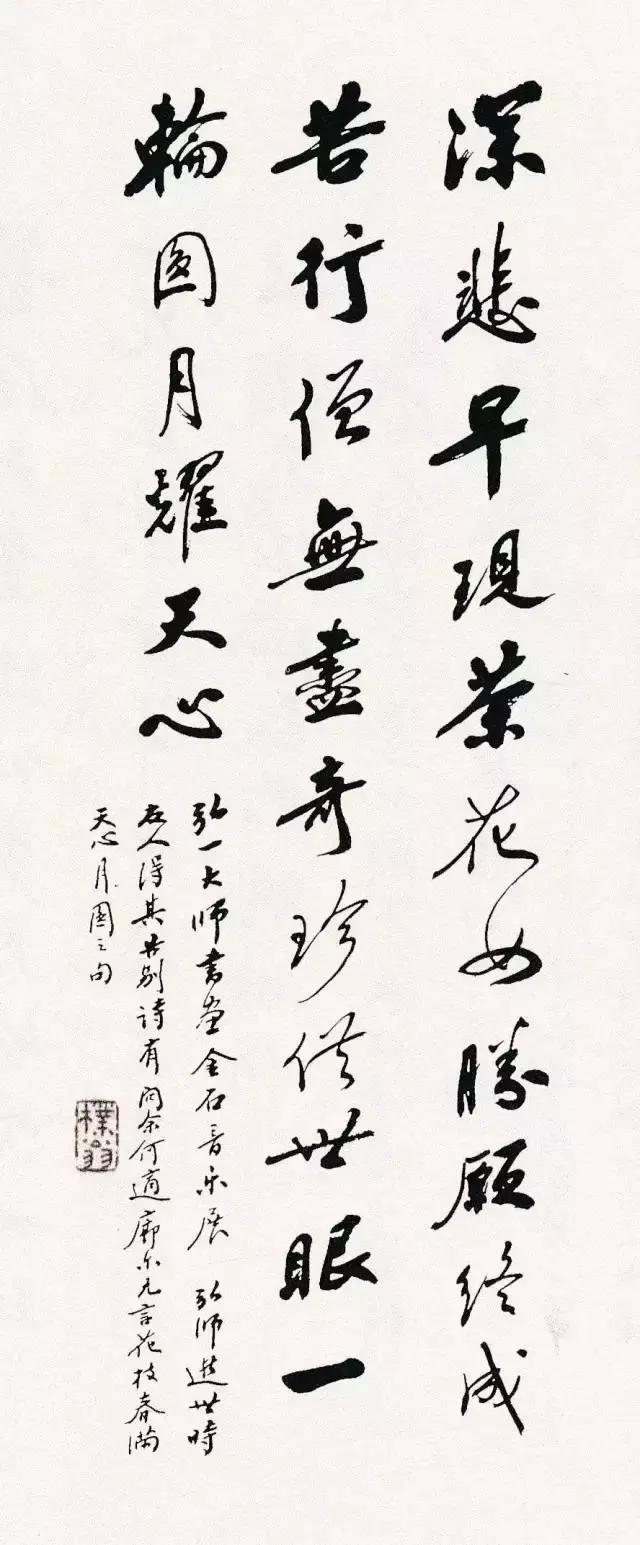 深悲早現茶花女勝願終成
苦行僧無盡奇珍供世眼一
輪圓月耀天心
弘一大师書画金石音乐展 弘师逝世時
友人得其告别詩有问余何適廓尔亡言花枝春满
天心月圓之句
樸翁